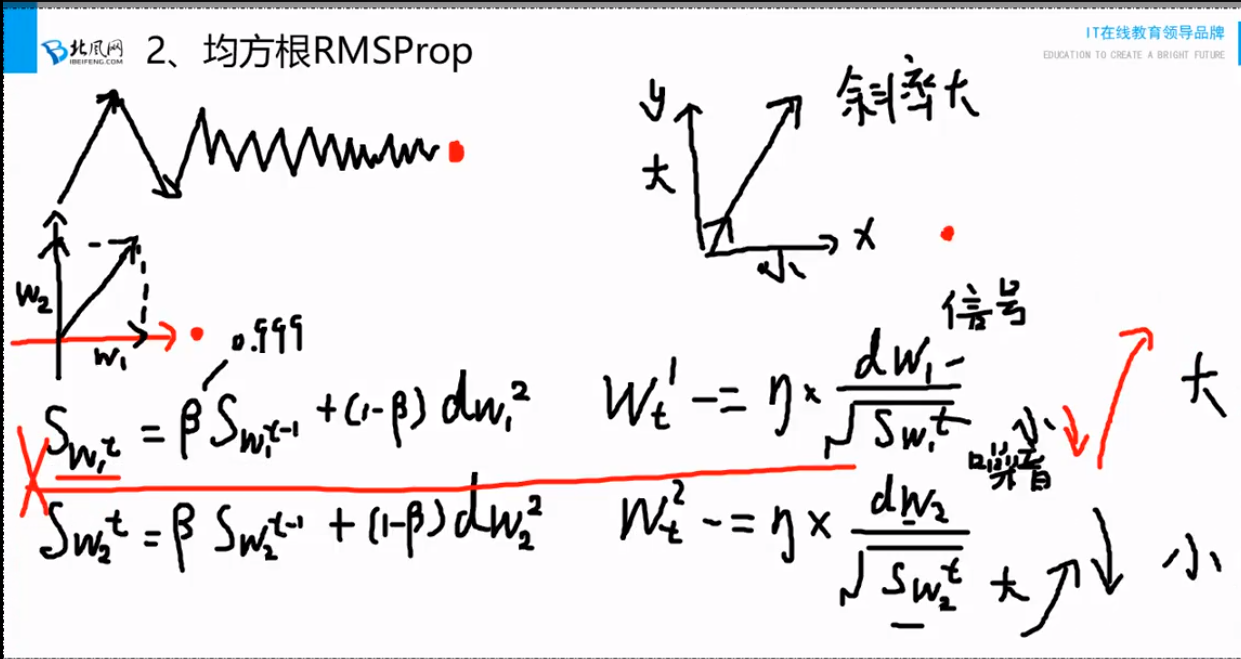 北风网
IBEIFENG.COM
2、均方根RMSProp
IT在线教育领导品牌
EDUCATION TO CREATE A BRIGHT FUTURE
y
斜率大
大
x
小
W₂
W₁
信号
0.999
S_{W₁}^t = β S_{W₁}^{t-1} + (1-β) dw₁²
W_t^1 -= η × dw₁ / √S_{W₁}^t
小
大
噪音
S_{W₂}^t = β S_{W₂}^{t-1} + (1-β) dw₂²
W_t^2 -= η × dw₂ / √S_{W₂}^t
大
小